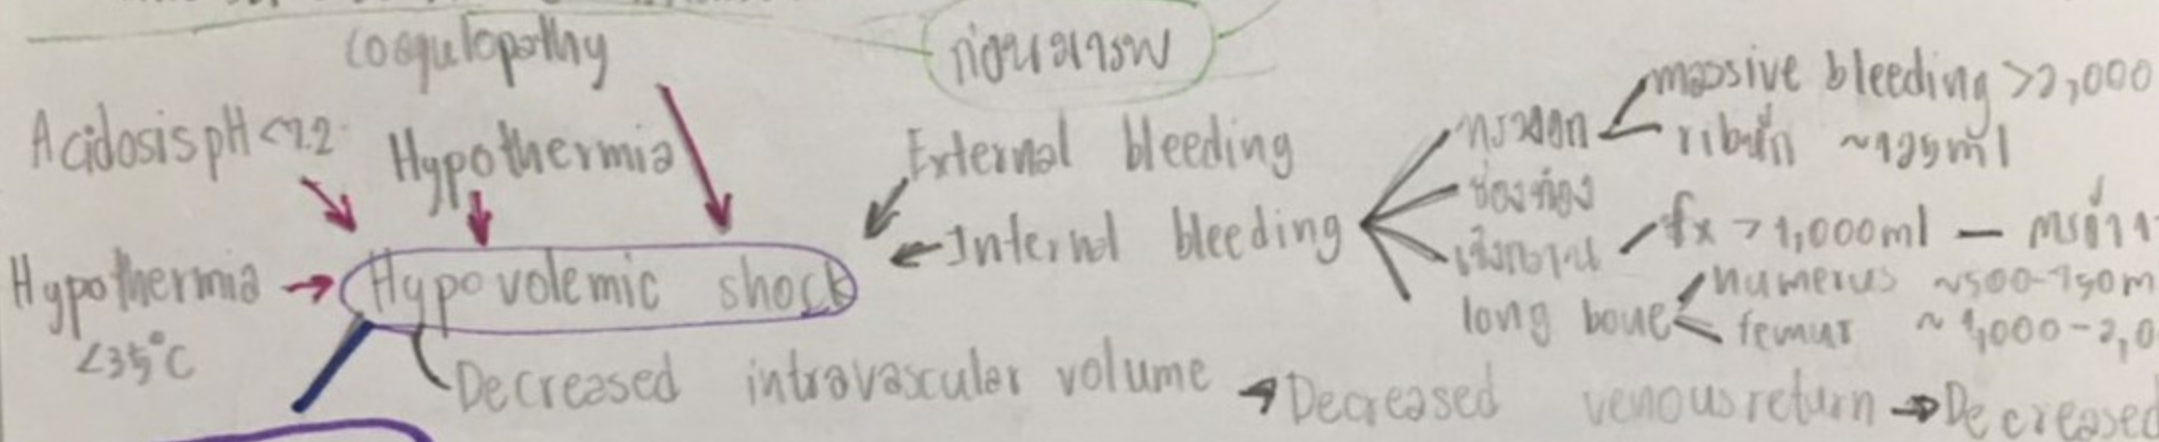 coagulopathy
ก่อนมารพ
Acidosis pH <7.2
Hypothermia
External bleeding
Internal bleeding
ทรวงอก
massive bleeding >2,000
rib หัก ~125ml
ช่องท้อง
เชิงกราน
fx >1,000ml —
long bone
humerus ~500-750m
femur ~1,000-2,0
Hypothermia
<35°C
Hypovolemic shock
Decreased intravascular volume → Decreased venous return → Decreased